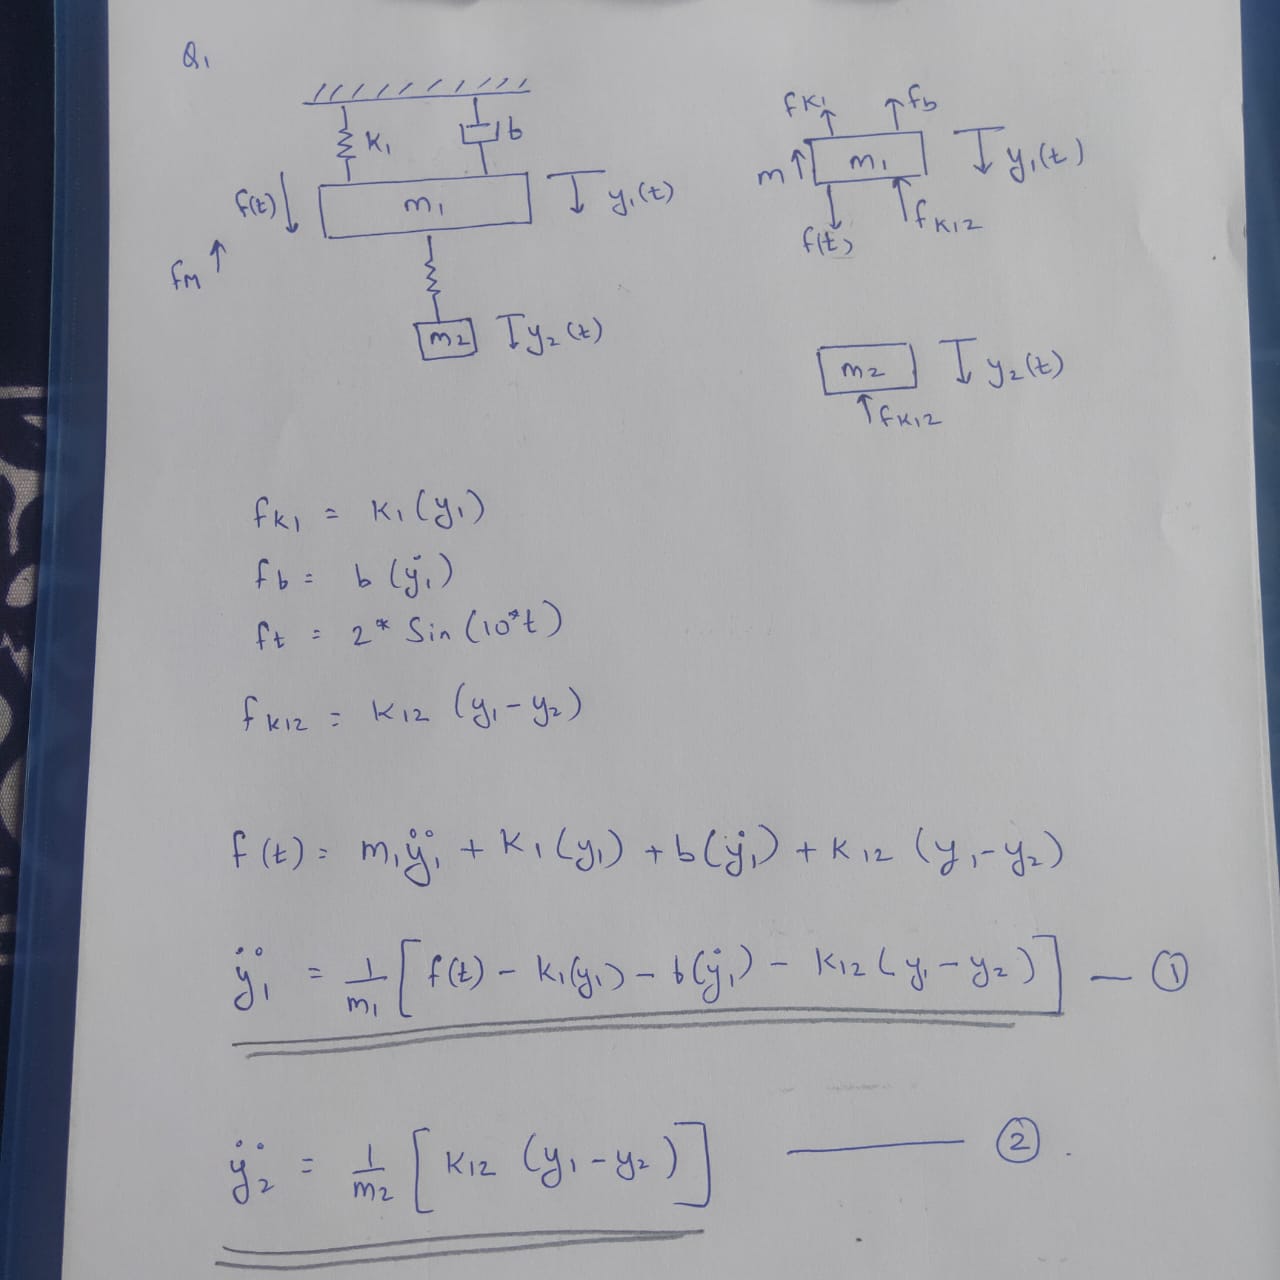 Q1
K1
b
f(t)
m1
y1(t)
fM
m2
y2(t)
fK1
fb
m
m1
y1(t)
f(t)
fK12
m2
y2(t)
fK12
fK1 = K1(y1)
fb = b(ẏ1)
ft = 2* Sin(10*t)
fK12 = K12 (y1-y2)
f(t) = m1ÿ1 + K1(y1) + b(ẏ1) + K12 (y1-y2)
ÿ1 = 1/m1 [f(t) - K1(y1) - b(ẏ1) - K12(y1-y2)] — ①
ÿ2 = 1/m2 [K12 (y1-y2)] — ②.